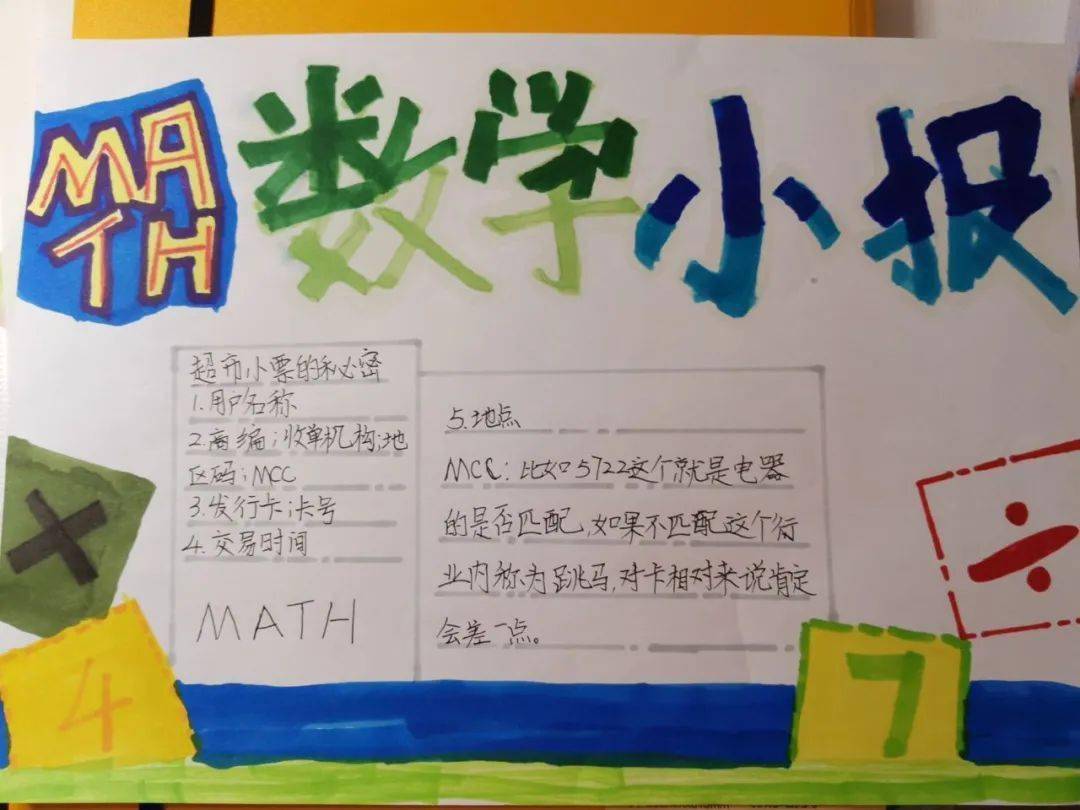 MATH
数学小报
超市小票的秘密
1.用户名称
2.商编;收单机构;地
区码;MCC
3.发行卡;卡号
4.交易时间
MATH
5.地点
MCC:比如5722这个就是电器
的是否匹配,如果不匹配这个行
业内称为跳马,对卡相对来说肯定
会差一点。
×
÷
4
7